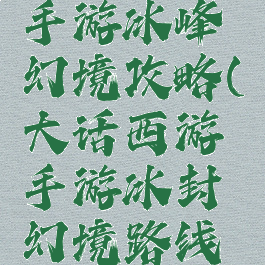 手游冰峰
幻境攻略(
大话西游
手游冰封
幻境路线